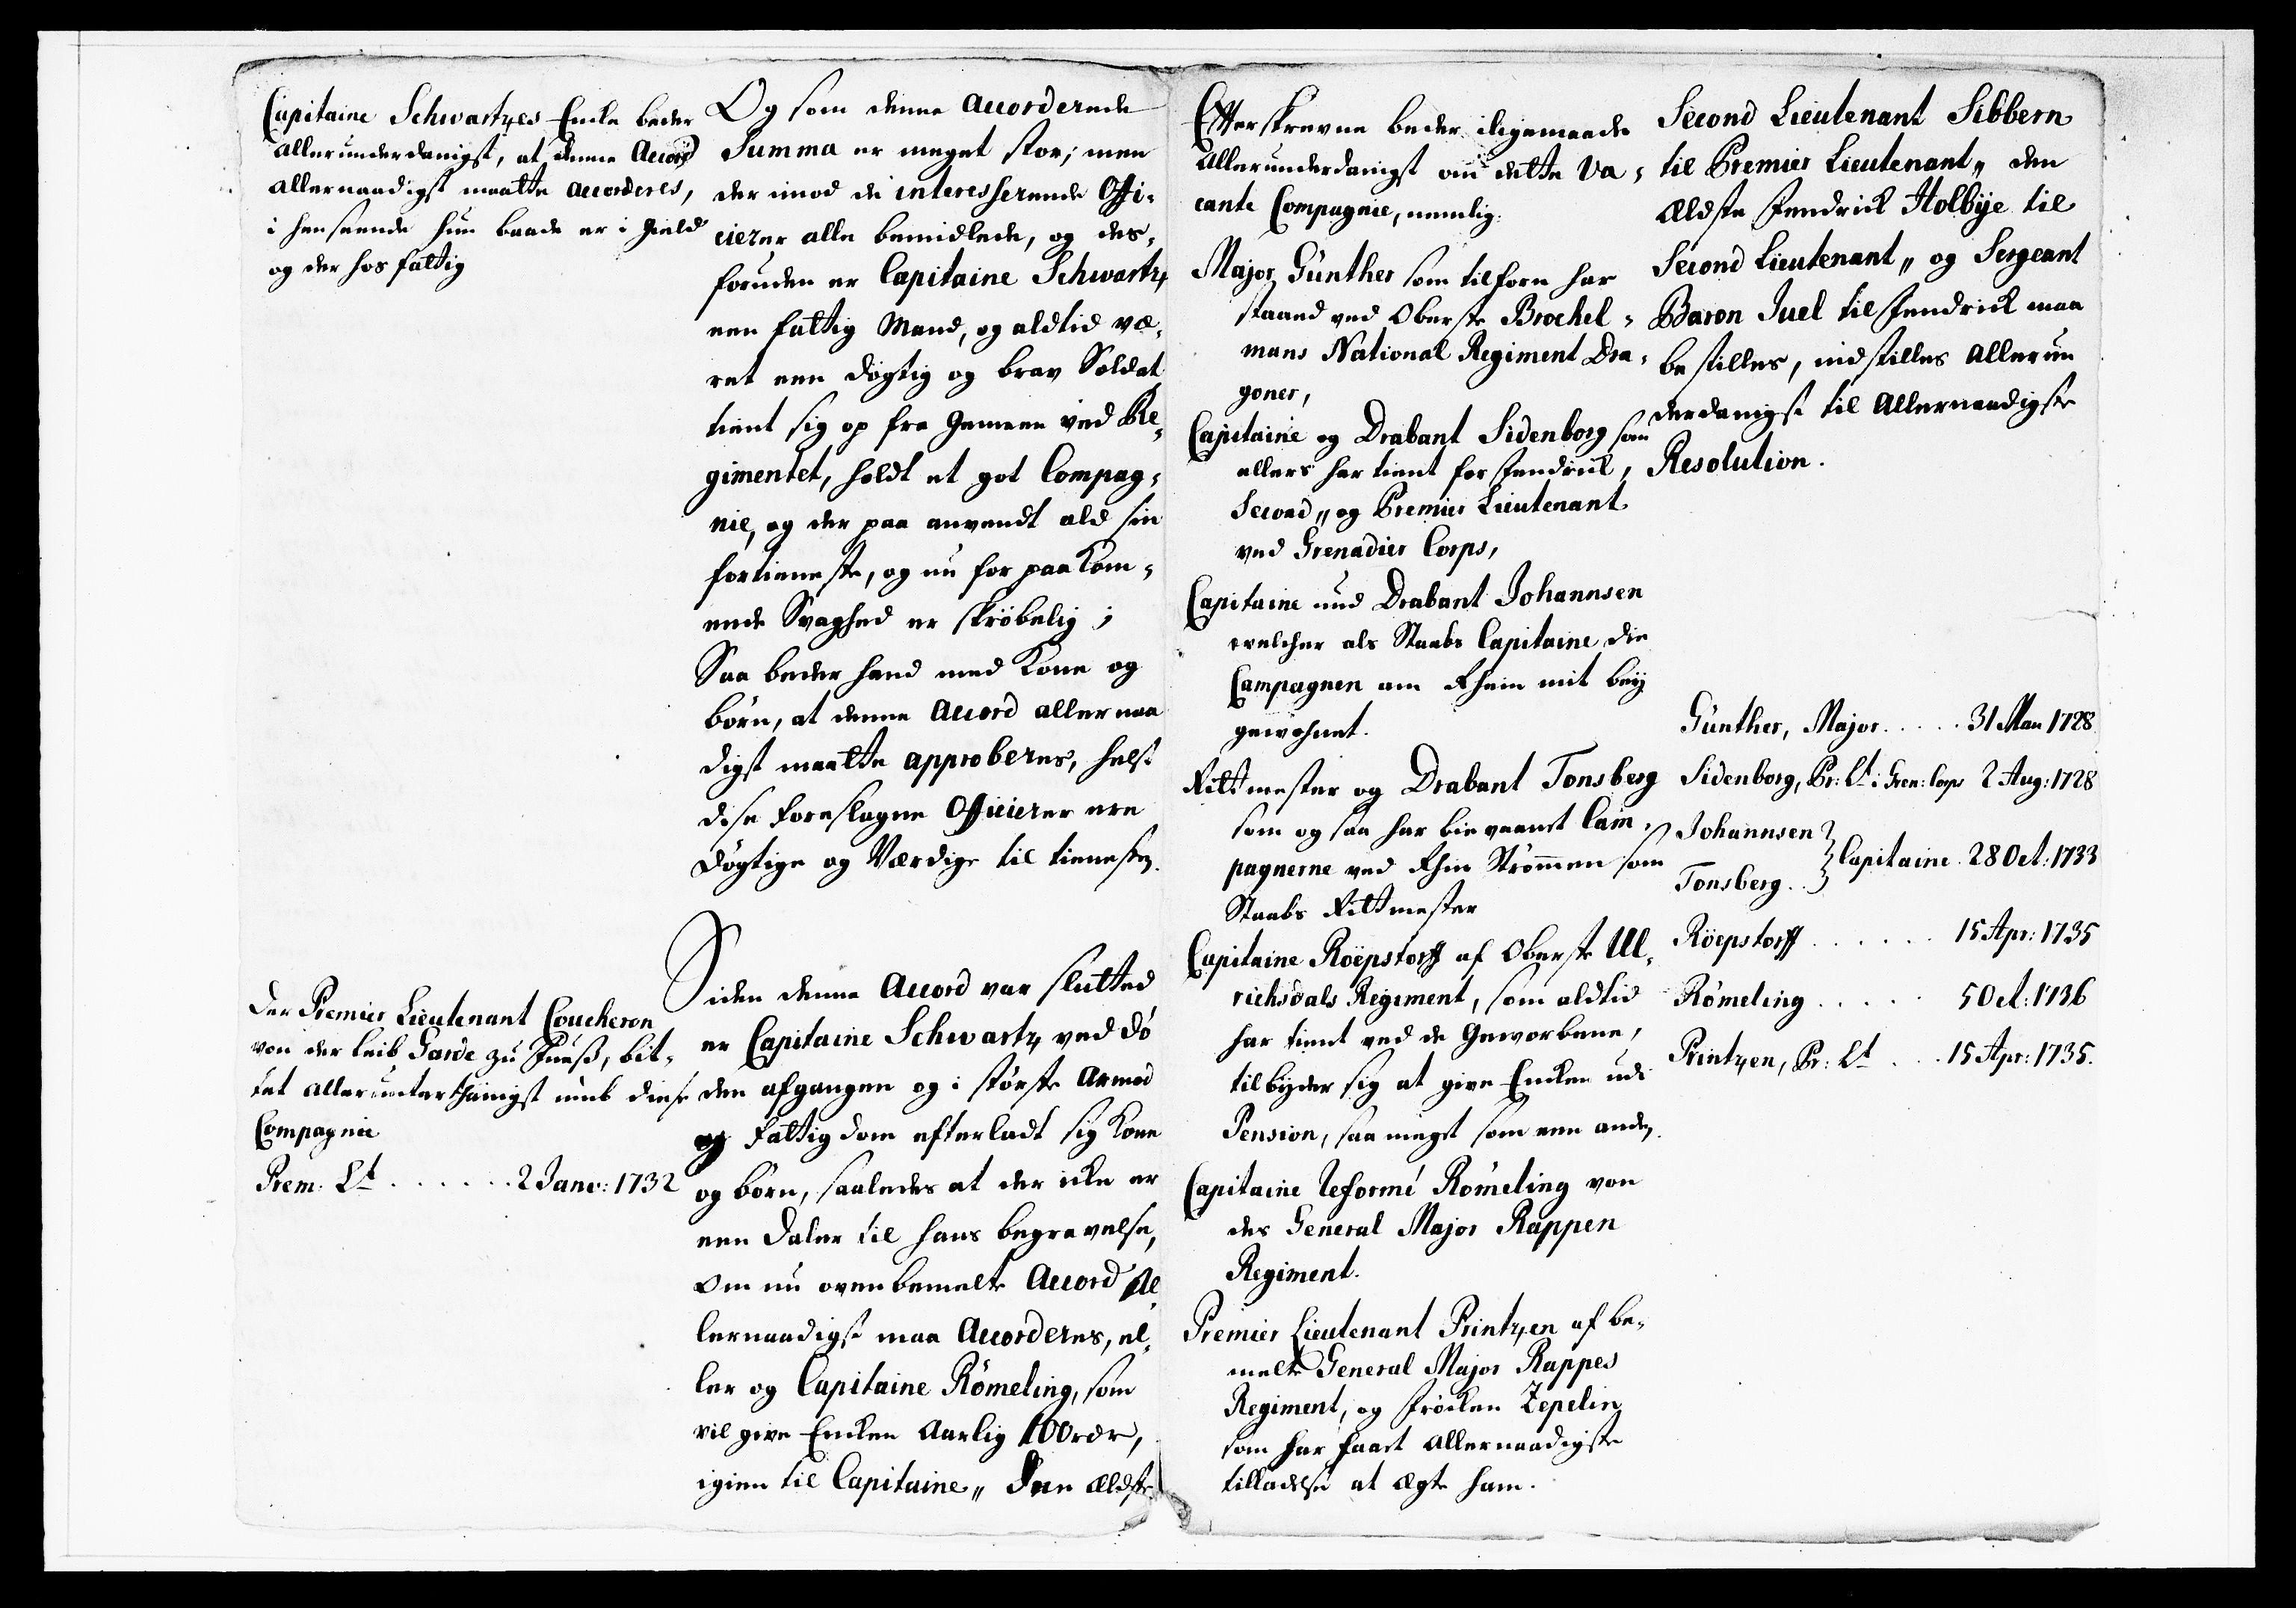 Capitaine Schwartzes Encke beder
allerunderdanigst, at denne Accord
allernaadigst maatte accorderes,
i henseende hun baade er i gield
og der hos fattig
Der Premier Lieutenant Coucheron
von der leib Garde zu Fuess, bit-
tet allerunterthänigst umb diese
Compagnie
Prem: Lt . . . . . . . 2 Janv: 1732
Og som denne accorderede
Summa er meget stor; men
der imod de interesserende Offi-
cierer alle bemidlede, og des-
foruden er Capitaine Schwartz
een fattig Mand, og aldtid væ-
ret een døgtig og brav Soldat
tient sig op fra Gemeen ved Re-
gimentet, holdt et got Compag-
nie, og der paa anvendt ald sin
fortieneste, og nu for paakom-
ende Svaghed er skrøbelig;
Saa beder hand med Kone og
børn, at denne Accord allernaa
digst maatte approberes, helst
disse foreslagne Officierer ere
døgtige og Værdige til tienesten.
Siden denne Accord var slutted
er Capitaine Schwartz ved Dø
den afgangen og i største Armod
og Fattigdom efterladt sig Kone
og børn, saaledes at der icke er
een Daler til hans begravelse,
Om nu ovenbemelte Accord Al-
lernaadigst maa Accorderes, el-
ler og Capitaine Römeling, som
vil give Encken Aarlig 100 rdr,
igien til Capitaine„ Den ældste
Efterskrevne beder iligemaade
Allerunderdanigst om dette Va-
cante Compagnie, nemlig:
Major Günther som tilforn har
staaed ved Oberste Brochel-
mans National Regiment Dra-
goner,
Capitaine og Drabant Sidenborg som
ellers har tient for Fendrick,
Second„ og Premier Lieutenant
ved Grenadier Corps,
Capitaine und Drabant Johannsen
welcher als Staabs Capitaine die
Campagnen am Rhein mit beÿ
gewohnet.
Rittmester og Drabant Tonsberg
som og saa har bievaanet Cam-
pagnerne ved Rhin Strømmen som
Staabs Rittmester
Capitaine Röepstorff af Oberste Ul-
richsdals Regiment, som aldtid
har tient ved de Geworbene,
tilbyder sig at give Encken udi
Pension, saa meget som een anden.
Capitaine Reformé Römeling von
des General Major Rappen
Regiment.
Premier Lieutenant Printzen af be-
melte General Major Rappes
Regiment, og Frøcken Zepelin
som har faaet allernaadigste
tilladelse at ægte ham.
Second Lieutenant Sibbern
til Premier Lieutenant„ den
ældste Fendrick Holbÿe til
Second Lieutenant„ og Sergeant
Baron Juel til Fendrick maa
bestilles, indstilles Allerun
derdanigst til Allernaadigste
Resolution.
Günther, Major . . . . . 31 Man 1728
Sidenborg, Pr: Lt i Gren: Corps 2 Aug: 1728
Johannsen
Tonsberg . . } Capitaine . 28 Oct: 1733
Röepstorff . . . . . . 15 Apr: 1735
Römeling . . . . . 5 Oct: 1736
Printzen, Pr: Lt . . . 15 Apr: 1735.